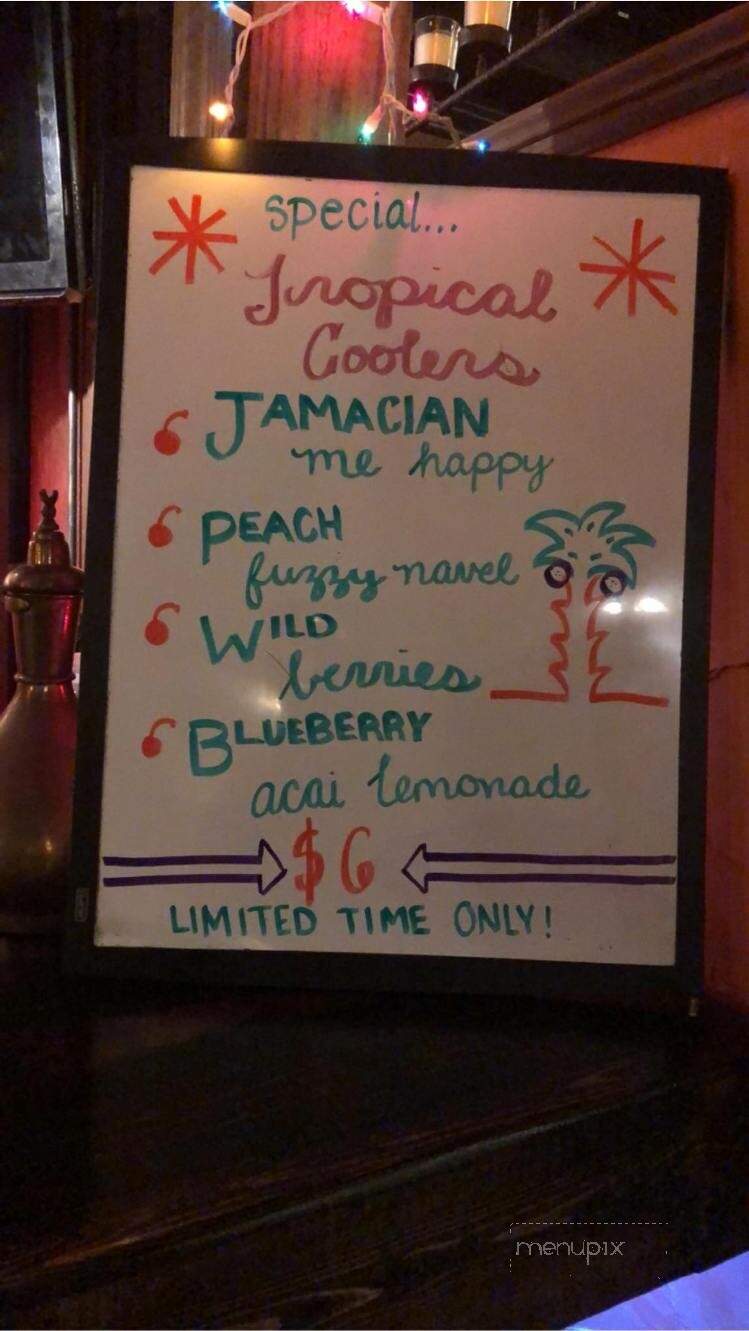 special...
Tropical
Coolers
JAMACIAN
me happy
PEACH
fuzzy navel
WILD
berries
BLUEBERRY
acai lemonade
$6
LIMITED TIME ONLY!
menupix